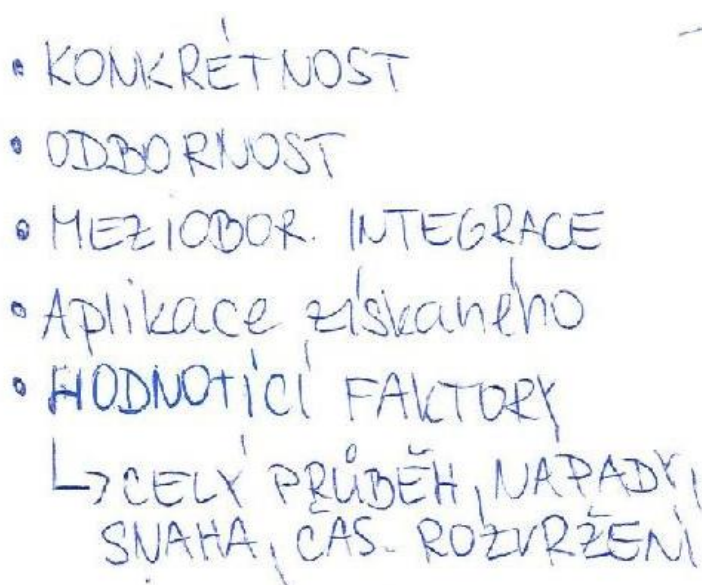 • KONKRÉTNOST
• ODBORNOST
• MEZIOBOR. INTEGRACE
• Aplikace získaného
• HODNOTÍCÍ FAKTORY
↳ CELÝ PRŮBĚH, NÁPADY,
SNAHA, ČAS. ROZVRŽENÍ